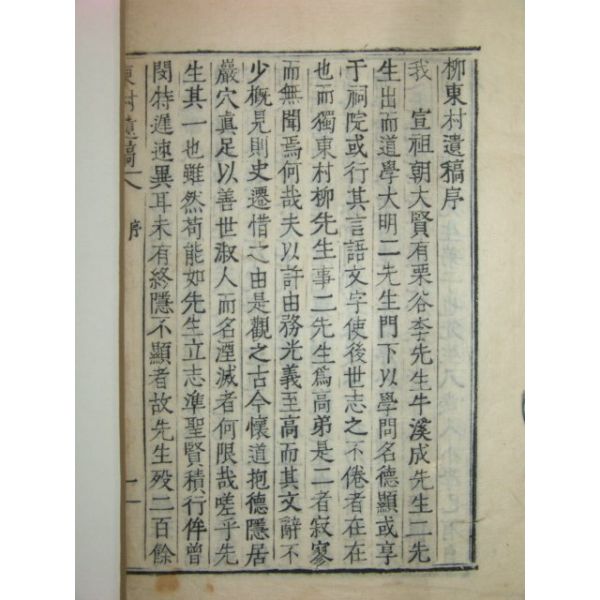 柳東村遺稿序
我　宣祖朝大賢有栗谷李先生牛溪成先生二先
生出而道學大明二先生門下以學問名德顯或享
于祠院或行其言語文字使後世志之不倦者在在
也而獨東村柳先生事二先生爲高弟是二者寂寥
而無聞焉何哉夫以許由務光義至高而其文辭不
少概見則史遷惜之由是觀之古今懷道抱德隱居
巖穴眞足以善世淑人而名湮滅者何限哉嗟乎先
生其一也雖然苟能如先生立志準聖賢積行侔曾
閔特遲速異耳未有終隱不顯者故先生歿二百餘
東村遺稿　序　一